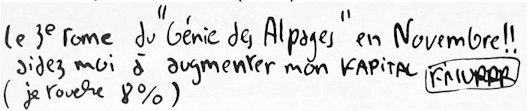 le 3e tome du "Génie des Alpages" en Novembre!!
aidez moi à augmenter mon KAPITAL
( je touche 8%)